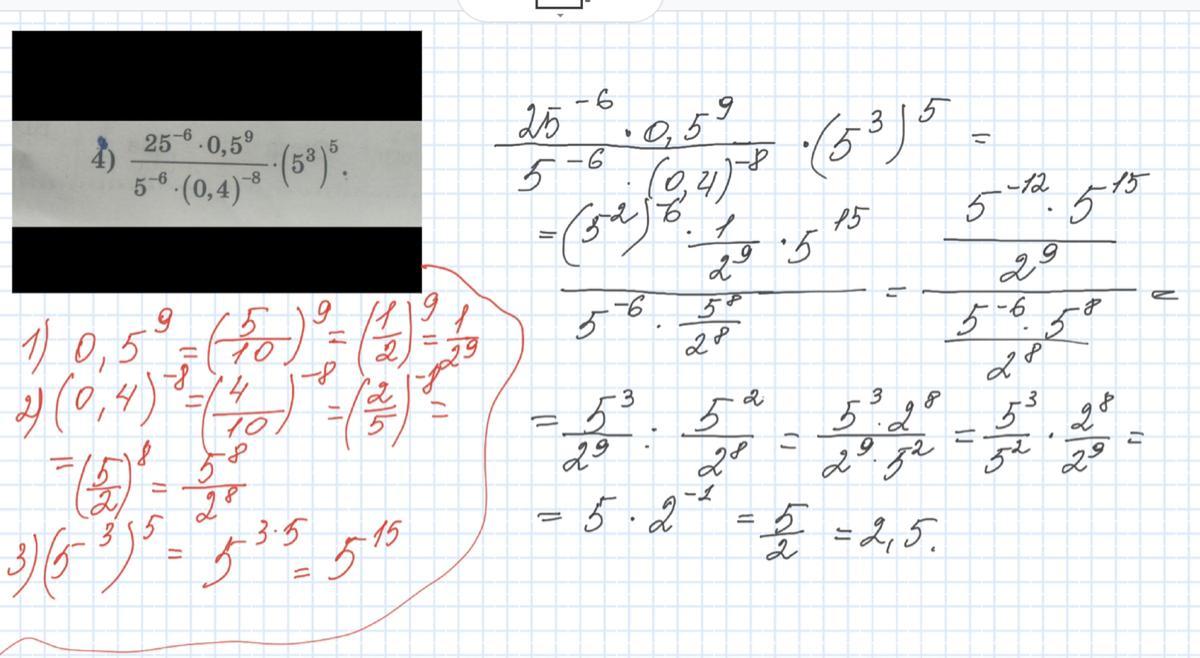 4) \frac{25^{-6} \cdot 0,5^9}{5^{-6} \cdot (0,4)^{-8}} \cdot (5^3)^5.
1) 0,5^9 = (\frac{5}{10})^9 = (\frac{1}{2})^9 = \frac{1}{2^9}
2) (0,4)^{-8} = (\frac{4}{10})^{-8} = (\frac{2}{5})^{-8} =
= (\frac{5}{2})^8 = \frac{5^8}{2^8}
3) (5^3)^5 = 5^{3 \cdot 5} = 5^{15}
\frac{25^{-6} \cdot 0,5^9}{5^{-6} \cdot (0,4)^{-8}} \cdot (5^3)^5 =
= \frac{(5^2)^{-6} \cdot \frac{1}{2^9} \cdot 5^{15}}{5^{-6} \cdot \frac{5^8}{2^8}} = \frac{\frac{5^{-12} \cdot 5^{15}}{2^9}}{\frac{5^{-6} \cdot 5^8}{2^8}} =
= \frac{5^3}{2^9} : \frac{5^2}{2^8} = \frac{5^3 \cdot 2^8}{2^9 \cdot 5^2} = \frac{5^3}{5^2} \cdot \frac{2^8}{2^9} =
= 5 \cdot 2^{-1} = \frac{5}{2} = 2,5.